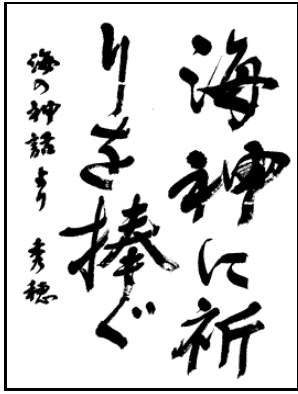 海神に祈
りを捧ぐ
海の神話より 秀穂